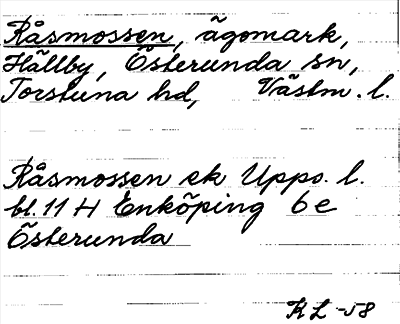 Råsmossen, ägomark,
Hällby, Österunda sn,
Torstuna hd, Västm. l.
Råsmossen ek Upps. l.
bl. 11 H Enköping 6e
Österunda
KL -58